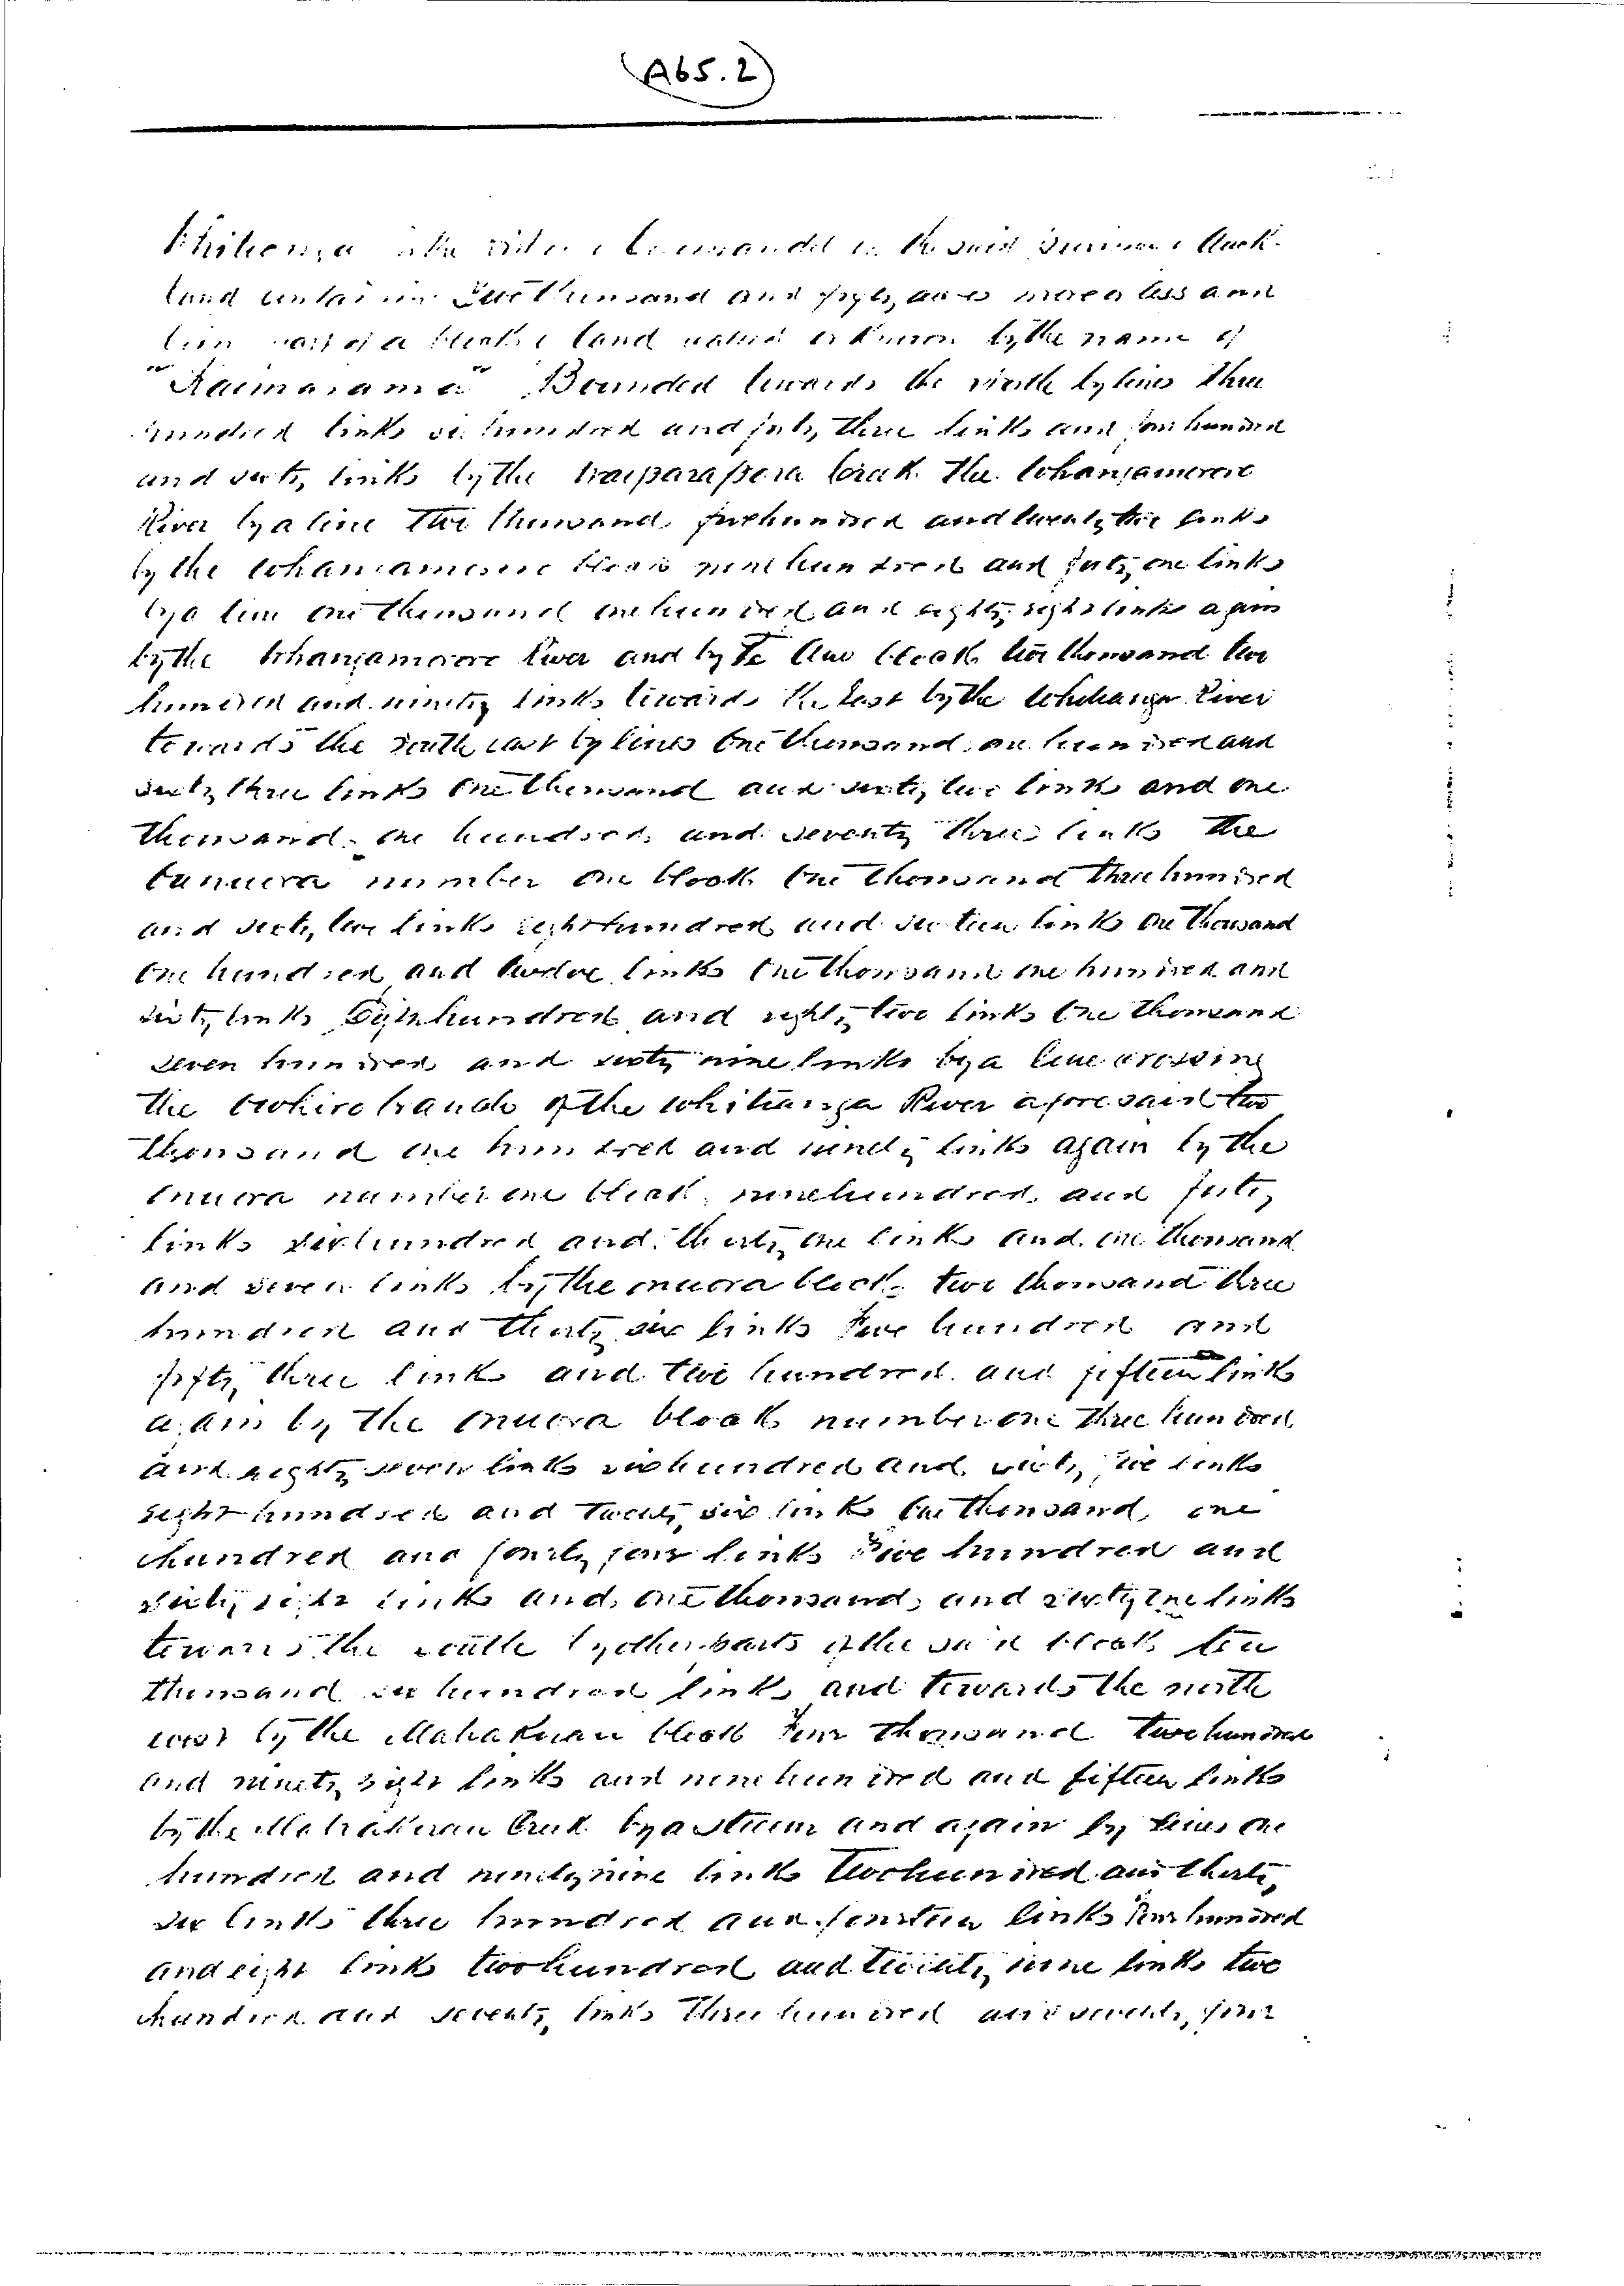 (A65.2)
Whitianga in the District of Coromandel in the said Province of Auck-
land containing Two thousand and fifty acres more or less and
being part of a block of land called or known by the name of
"Kaimarama" Bounded towards the North by lines three
hundred links six hundred and fifty three links and four hundred
and sixty links by the Waiparapara Creek the Whangamorore
River by a line Two thousand five hundred and twenty two links
by the Whangamorore River nine hundred and forty one links
by a line one thousand one hundred and eighty eight links again
by the Whangamorore River and by Te Awo block two thousand two
hundred and ninety links towards the East by the Whitianga River
towards the South east by lines One thousand one hundred and
sixty three links One thousand and sixty two links and one
thousand one hundred and seventy three links the
Onuora number one block One thousand three hundred
and sixty two links eight hundred and sixteen links One thousand
One hundred and twelve links One thousand one hundred and
sixty links Eight hundred and eighty two links One thousand
seven hundred and sixty nine links by a line crossing
the Owhiro branch of the Whitianga River aforesaid two
thousand one hundred and ninety links again by the
Onuora number one block nine hundred and forty
links six hundred and thirty one links and one thousand
and seven links by the Onuora block two thousand three
hundred and thirty six links Five hundred and
fifty three links and two hundred and fifteen links
again by the Onuora block number one three hundred
and eighty seven links six hundred and sixty links
eight hundred and twenty six links One thousand one
hundred and forty four links Five hundred and
sixty eight links and one thousand and sixty one links
towards the South by other parts of the said block ten
thousand six hundred links and towards the north
west by the Mahakirau block Four thousand two hundred
and ninety eight links and nine hundred and fifteen links
by the Mahakirau Creek by a Stream and again by lines one
hundred and ninety nine links Two hundred and thirty
six links three hundred and fourteen links Four hundred
and eight links two hundred and twenty nine links two
hundred and seventy links Three hundred and seventy four